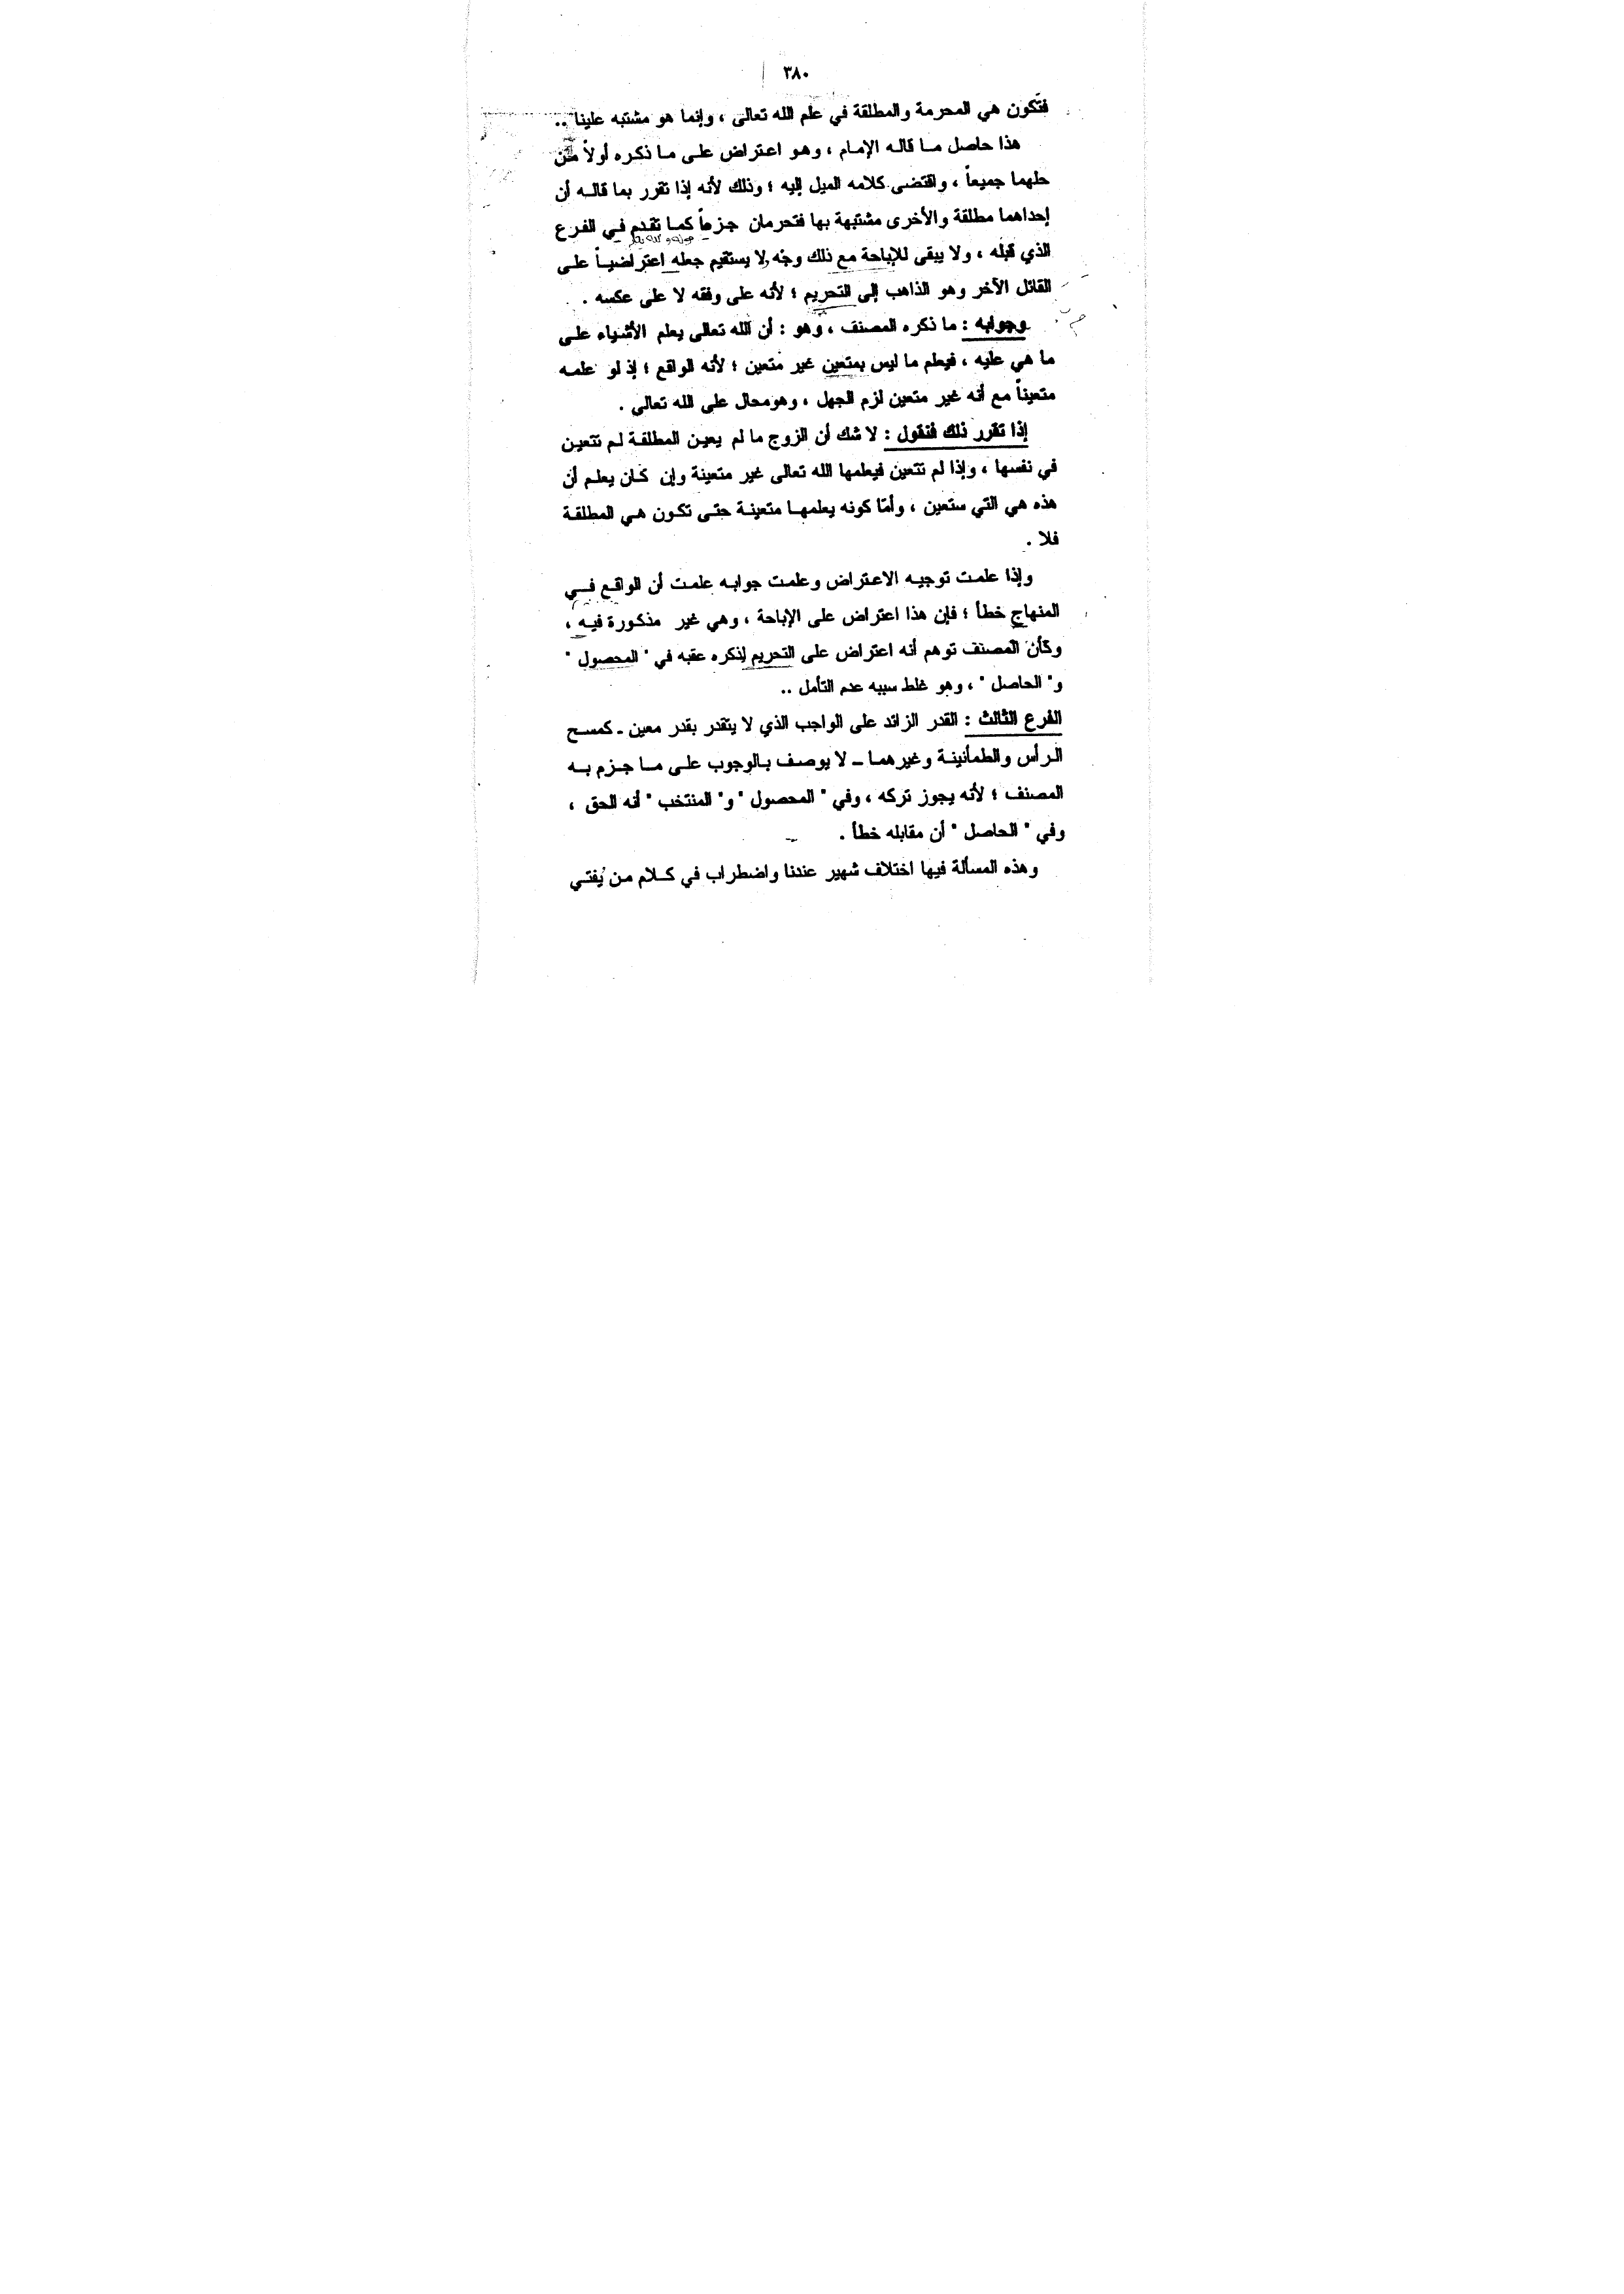 ٣٨٠
فتكون هي المحرمة والمطلقة في علم الله تعالى ، وإنما هو مشتبه علينا ..
هذا حاصل مـا قالـه الإمـام ، وهـو اعـتراض علـى مـا ذكـره أولاً من
حلهما جميعاً ، واقتضى كلامه الميل إليه ؛ وذلك لأنه إذا تقرر بما قالـه أن
إحداهما مطلقة والأخرى مشتبهة بها فتحرمان جـزماً كمـا تقدم فـي الفـرع
الذي قبله ، ولا يبقى للإباحة مع ذلك وجْه, لا يستقيم جعله اعتراضيـاً علـى
القائل الآخر وهو الذاهب إلى التحريم ؛ لأنه على وفقه لا على عكسه .
وجوابه : ما ذكره المصنف ، وهو : أن الله تعالى يعلم الأشياء علـى
ما هي عليه ، فيعلم ما ليس بمتعين غير متعين ؛ لأنه الواقع ؛ إذ لو علمـه
متعيناً مع أنه غير متعين لزم الجهل ، وهومحال على الله تعالى .
إذا تقرر ذلك فنقول : لا شك أن الزوج ما لم يعيـن المطلقـة لـم تتعيـن
في نفسها ، وإذا لم تتعين فيعلمها الله تعالى غير متعينة وإن كـان يعلـم أن
هذه هي التي ستعين ، وأمّا كونه يعلمهـا متعينـة حتـى تكـون هـي المطلقـة
فلا .
وإذا علمت توجيـه الاعتراض وعلمـت جوابـه علمـت أن الواقـع فـي
المنهاج خطأ ؛ فإن هذا اعتراض على الإباحة ، وهي غير مذكورة فيـه ،
وكأن المصنف توهم أنه اعتراض على التحريم لذكره عقبه في " المحصول "
و" الحاصل " ، وهو غلط سببه عدم التأمل ..
الفرع الثالث : القدر الزائد على الواجب الذي لا يتقدر بقدر معين ـ كمسـح
الـرأس والطمأنينـة وغيرهمـا ــ لا يوصـف بـالوجوب علـى مـا جـزم بـه
المصنف ؛ لأنه يجوز تركه ، وفي " المحصول " و" المنتخب " أنه الحق ،
وفي " الحاصل " أن مقابله خطأ .
وهذه المسألة فيها اختلاف شهير عندنا واضطراب في كـلام مـن يُفتـي